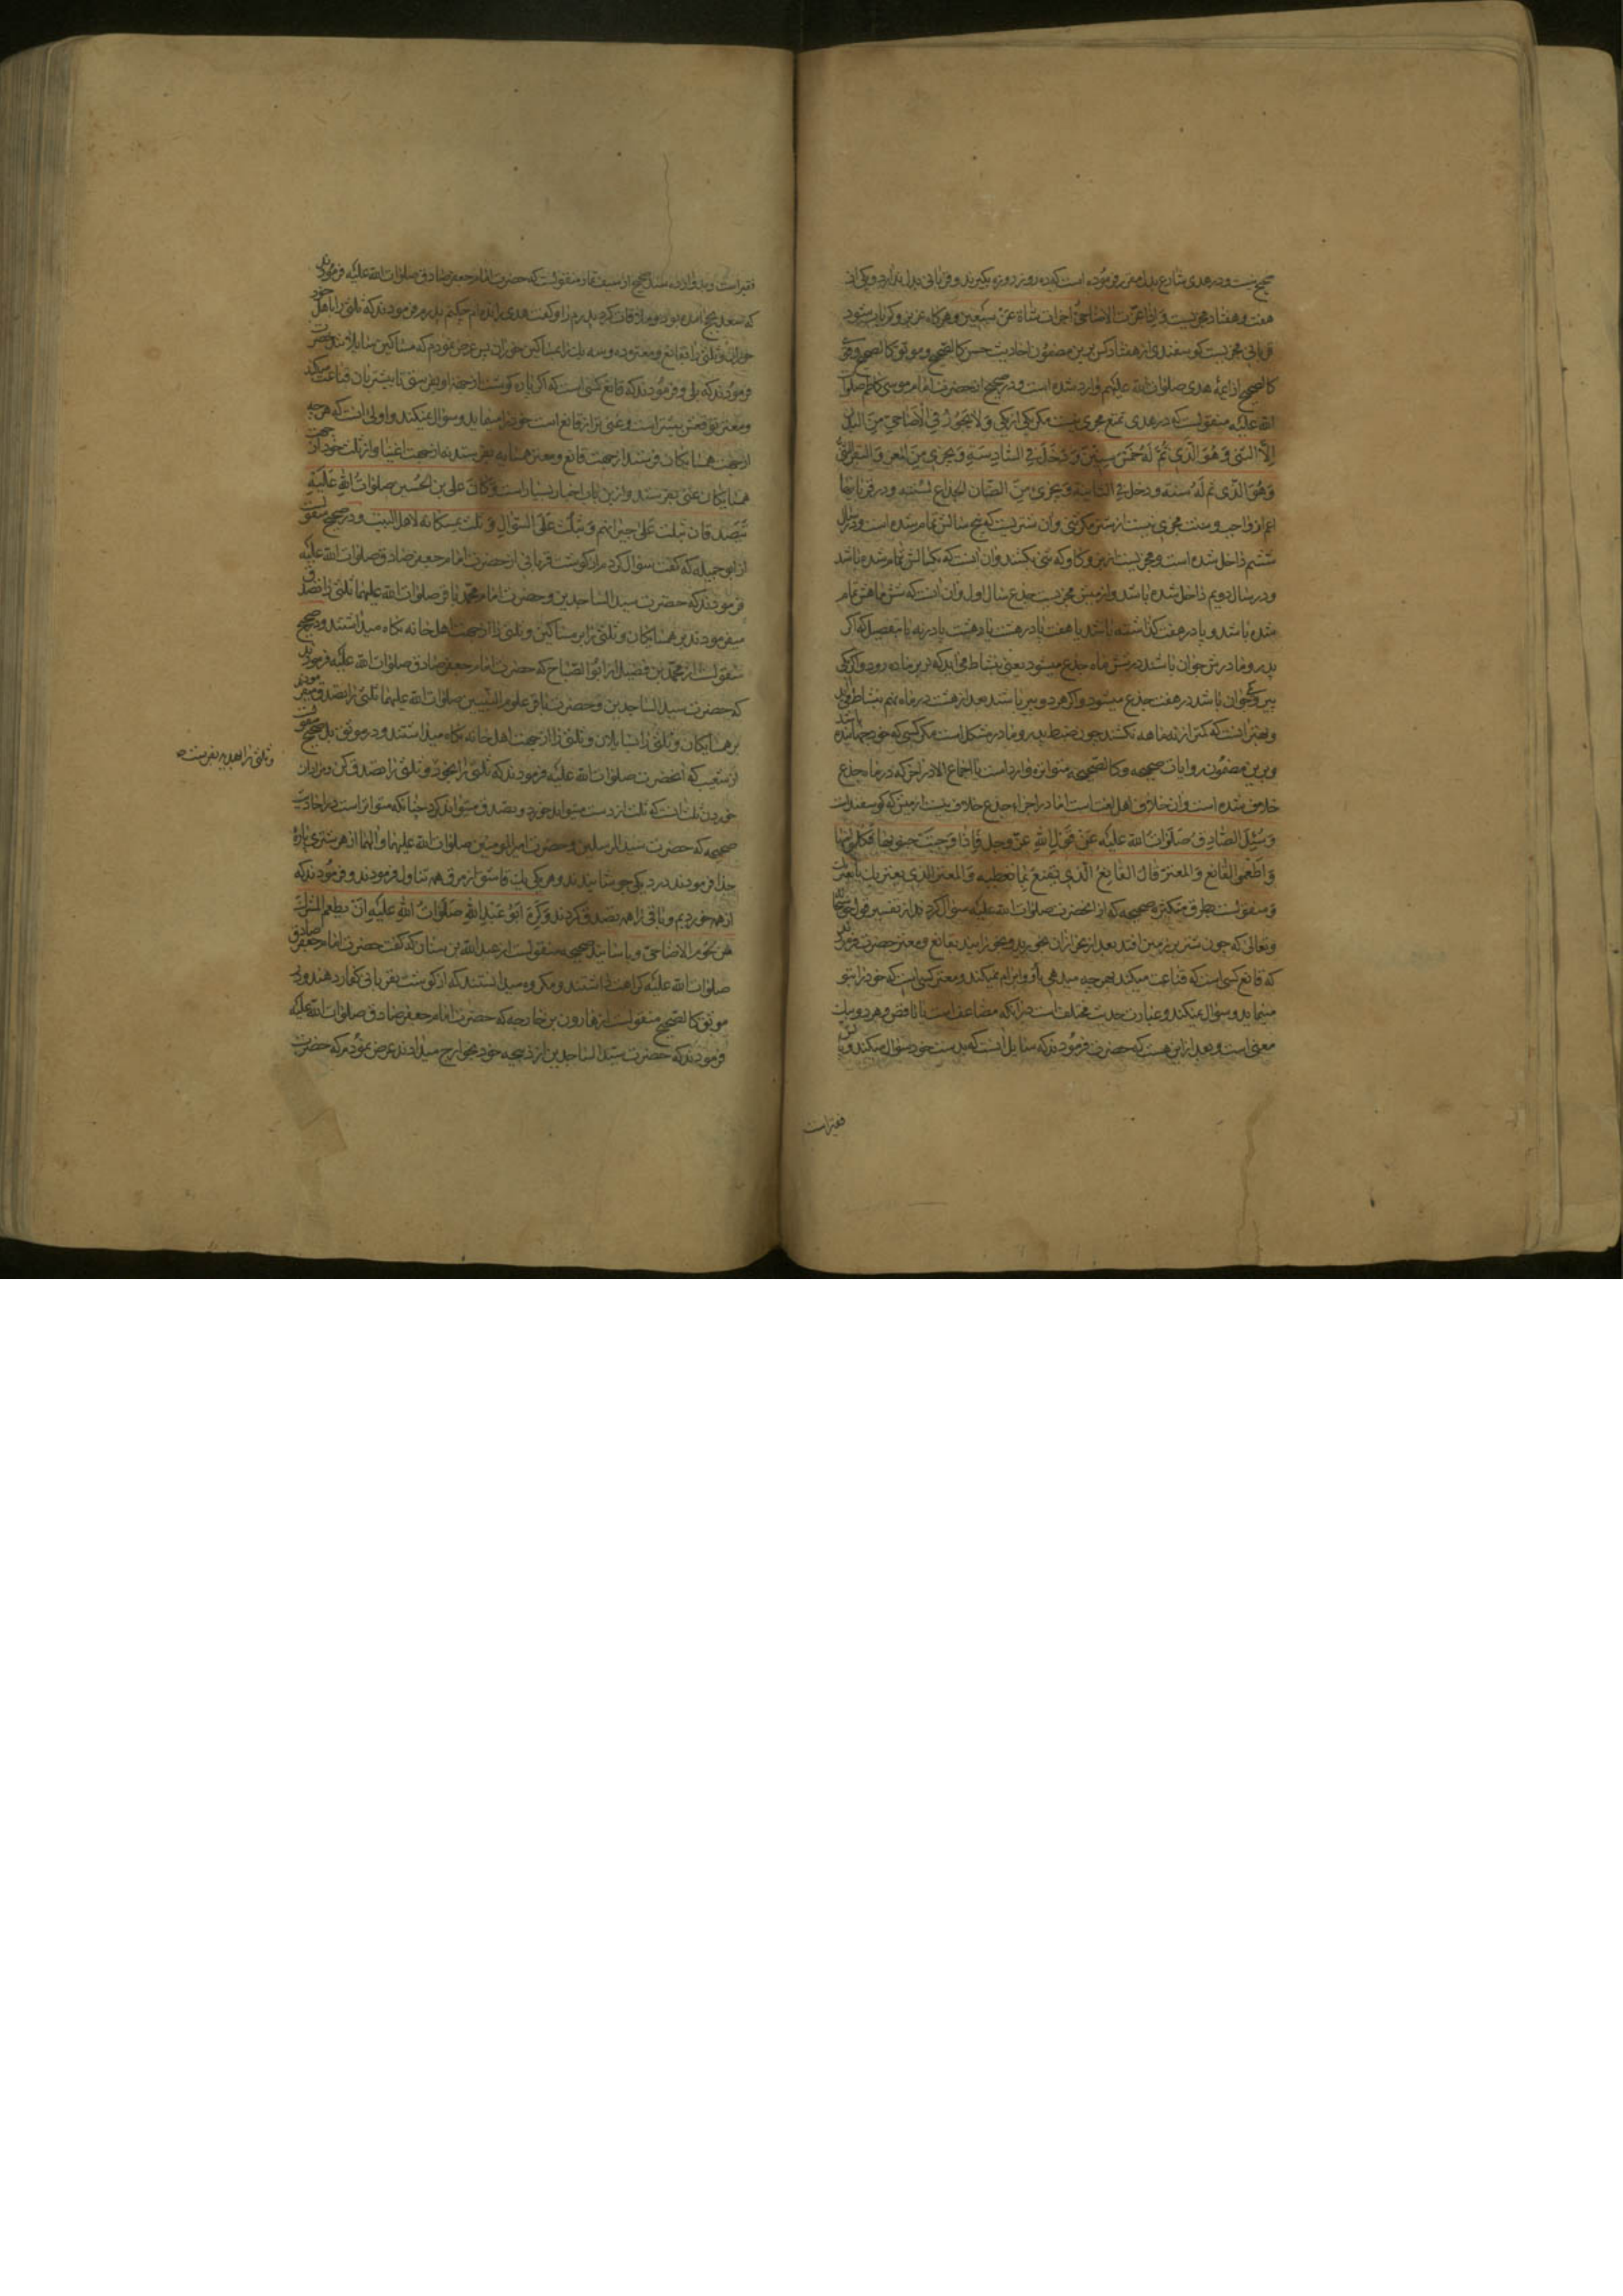 صحیح نیست و در هدی شارع بدل مقرر فرموده است که ده روز روزه بگیرند و قربانی بدل ندارد و یکی از
هفت و هفتاد مجزیست وَ اِذَا عَزَّتِ الاَضَاحِیُّ اَجْزَأَتْ شَاةٌ عَنْ سَبْعِینَ و هرگاه عزیز و کم یاب شود
قربانی مجزیست گوسفندی از هفتاد کس برین مضمون احادیث حسن کالصحیح و موثق کالصحیح و قوی
کالصحیح از ائمه هدی صلوات الله علیهم وارد شده است و در صحیح از حضرت امام موسی کاظم صلوات
الله علیه منقولست که در هدی تمتع مجزی نیست مگر یکی از یکی وَ لا یَجُوزُ فِی الْاَضَاحِی مِنَ البُدْنِ
اِلّا الثَّنِی وَ هُوَ الَّذِی تَمَّ لَهُ خَمْسُ سِنِینَ وَ دَخَلَ فِی السَّادِسَةِ وَ یُجْزِی مِنَ الْمَعْزِ وَ الْبَقَرِ الثَّنِیُّ
وَ هُوَ الَّذِی تَمَّ لَهُ سَنَةٌ وَ دَخَلَ فِی الثَّانِیَةِ وَ یُجْزِئُ مِنَ الضَّأْنِ الجَذَعُ لِسَنَةٍ و در قربانیها
اعم از واجب و سنت مجزی نیست از شتر مگر ثنی و آن شتریست که پنج سالش تمام شده است و در سال
ششم داخل شده است و مجزیست از بز و گاو که ثنی بکشند و آن آنست که یکسالش تمام شده باشد
و در سال دویم داخل شده باشد و از میش مجزیست جذع سال اول و آن آنست که شش ماهش تمام
شده باشد و پا در هفت گذاشته باشد یا هفت پا در هشت یا هشت پا در نه باین تفصیل که اگر
پدر و مادرش جوان باشند در شش ماه جذع میشود یعنی بنشاط می آید که برین ماده رود و اگر یکی
پیر و یکی جوان باشد در هفت جذع میشود و اگر هر دو پیر باشند بعد از هشت در ماه نهم بنشاط می آید
و بهتر آنست که کمتر از نه ماهه نکشند چون ضبط پدر و مادر مشکل است مگر کسی که خود جهانیده باشد
و برین مضمون روایات صحیحه و کالصحیحه متواتره وارد است با اجماع الا در آخر که در ماه جذع
خلاف شده است و آن خلاف اهل لغت است اما در اجزاء جذع خلاف نیست از میش که گوسفند است
وَ سُئِلَ الصَّادِقُ صَلَوَاتُ الله عَلَیْهِ عَنْ قَوْلِ اللهِ عَزَّ وَ جَلَّ فَاِذَا وَجَبَتْ جُنُوبُهَا فَکُلُوا مِنْهَا
وَ اَطْعِمُوا القَانِعَ وَ المُعْتَرَّ قَالَ القَانِعُ الَّذِی یَقْنَعُ بِمَا تُعْطِیهِ وَ المُعْتَرُّ الَّذِی یَعْتَرِیکَ
و منقولست بطرق متکثره صحیحه که از آنحضرت صلوات الله علیه سؤال کردند از تفسیر قول حق سبحانه
و تعالی که چون شتر بر زمین افتد بعد از نحر از آن بخورید و بخورانید بقانع و معتر حضرت فرمودند
که قانع کسی است که قناعت میکند بهر چه میدهی باو و ابرام نمیکند و معتر کسی است که خود را بتو
مینماید و سؤال نمیکند و عبارت حدیث مختلف است در آنکه مضاعف است یا ناقص و هر دو بیک
معنی است و بعد ازین هست که حضرت فرمودند که سایل آنست که بدست خود سؤال میکند و
فقیر است
فقیر است و بدو وارده بسند صحیح از سیف تمار منقولست که حضرت امام جعفر صادق صلوات الله علیه فرمودند
که سعد بحج آمده بود و ملاقات کرد پدرم را و گفت هدی رانده ام چکنم پدرم فرمودند که ثلثی را باهل خود
خوران و ثلثی را بقانع و معتر ده و سه یک را بمساکین خوران پس عرض نمودم که مساکین سایلانند حضرت
فرمودند که بلی و فرمودند که قانع کسی است که اگر پاره گوشت از جهة او بفرستی تا بیشتر بان قناعت میکند
و معتر توقعش بیشتر است و غنی تر از قانع است خود را مینماید و سؤال نمیکند و اولی آنست که هر چه
از جهت همسایگان فرستد از جهت قانع و معتر همسایه بفرستد نه از جهت اغنیا و از ثلث خود از جهت
همسایگان غنی بفرستد و ازین باب اخبار بسیار است وَ کَانَ عَلیُ بن الحُسین صلوات اللهِ عَلَیهِ
یتصدقان بثلث عَلَی جیرانهم وَ بثُلُث عَلَی السُّؤالِ وَ ثلث یمسکانه لاهل البیت و در صحیح منقولست
از ابو جمیله که گفت سؤال کردم از گوشت قربانی از حضرت امام جعفر صادق صلوات الله علیه
فرمودند که حضرت سید الساجدین و حضرت امام محمد باقر صلوات الله علیهما ثلثی را تصدق
میفرمودند بر همسایگان و ثلثی را بر مساکین و ثلثی را از جهت اهل خانه نگاه میداشتند و در صحیح
منقولست از محمد بن فضیل از ابو الصباح که حضرت امام جعفر صادق صلوات الله علیه فرمودند
که حضرت سید الساجدین و حضرت باقر علوم النبیین صلوات الله علیهما ثلثی را تصدق میفرمودند
بر همسایگان و ثلثی را بسایلان و ثلثی را از جهت اهل خانه نگاه میداشتند و در موثق بل صحیح منقولست
از شعیب که آنحضرت صلوات الله علیه فرمودند که ثلثی را بخور و ثلثی را تصدق کن و مراد از
وثلثی را بهدیه بفرست صح
خوردن ثلث آنست که ثلث از دست میتواند خورد و تصدق میتواند کرد چنانکه متواتر است در احادیث
صحیحه که حضرت سید المرسلین و حضرت امیر المومنین صلوات الله علیهما و آلهما از هر شتری پاره
جدا فرمودند در دیکی جوشانیدند و هر یکی یک قاشق از مرق همه تناول فرمودند و فرمودند که
از همه خوردیم و باقی را همه تصدق کردند وَ کَرِهَ اَبُو عَبْدِ اللهِ صَلَوَاتُ اللهِ عَلَیْهِ اَنْ یطعم المشرک
من لحوم الاضاحی و باسانید صحیحه منقولست از عبد الله بن سنان که گفت حضرت امام جعفر صادق
صلوات الله علیه کراهت داشتند و مکروه میدانستند که از گوشت قربانی بکفار دهند و در
موثق کالصحیح منقولست از هارون بن خارجه که حضرت امام جعفر صادق صلوات الله علیه
فرمودند که حضرت سید الساجدین از ذبیحه خود بخوارج میدادند عرض نمودم که حضرت